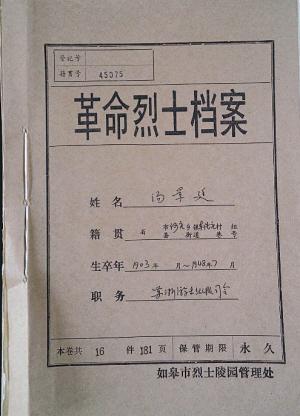 登记号
档案号 45075
革命烈士档案
姓名 汤景延
籍贯 省 市 乡 镇 村 组
县 街道 巷 号
生卒年 1903年 月～1948年7月
职务 司令
本卷共 16 件 181 页 保管期限 永久
如皋市烈士陵园管理处